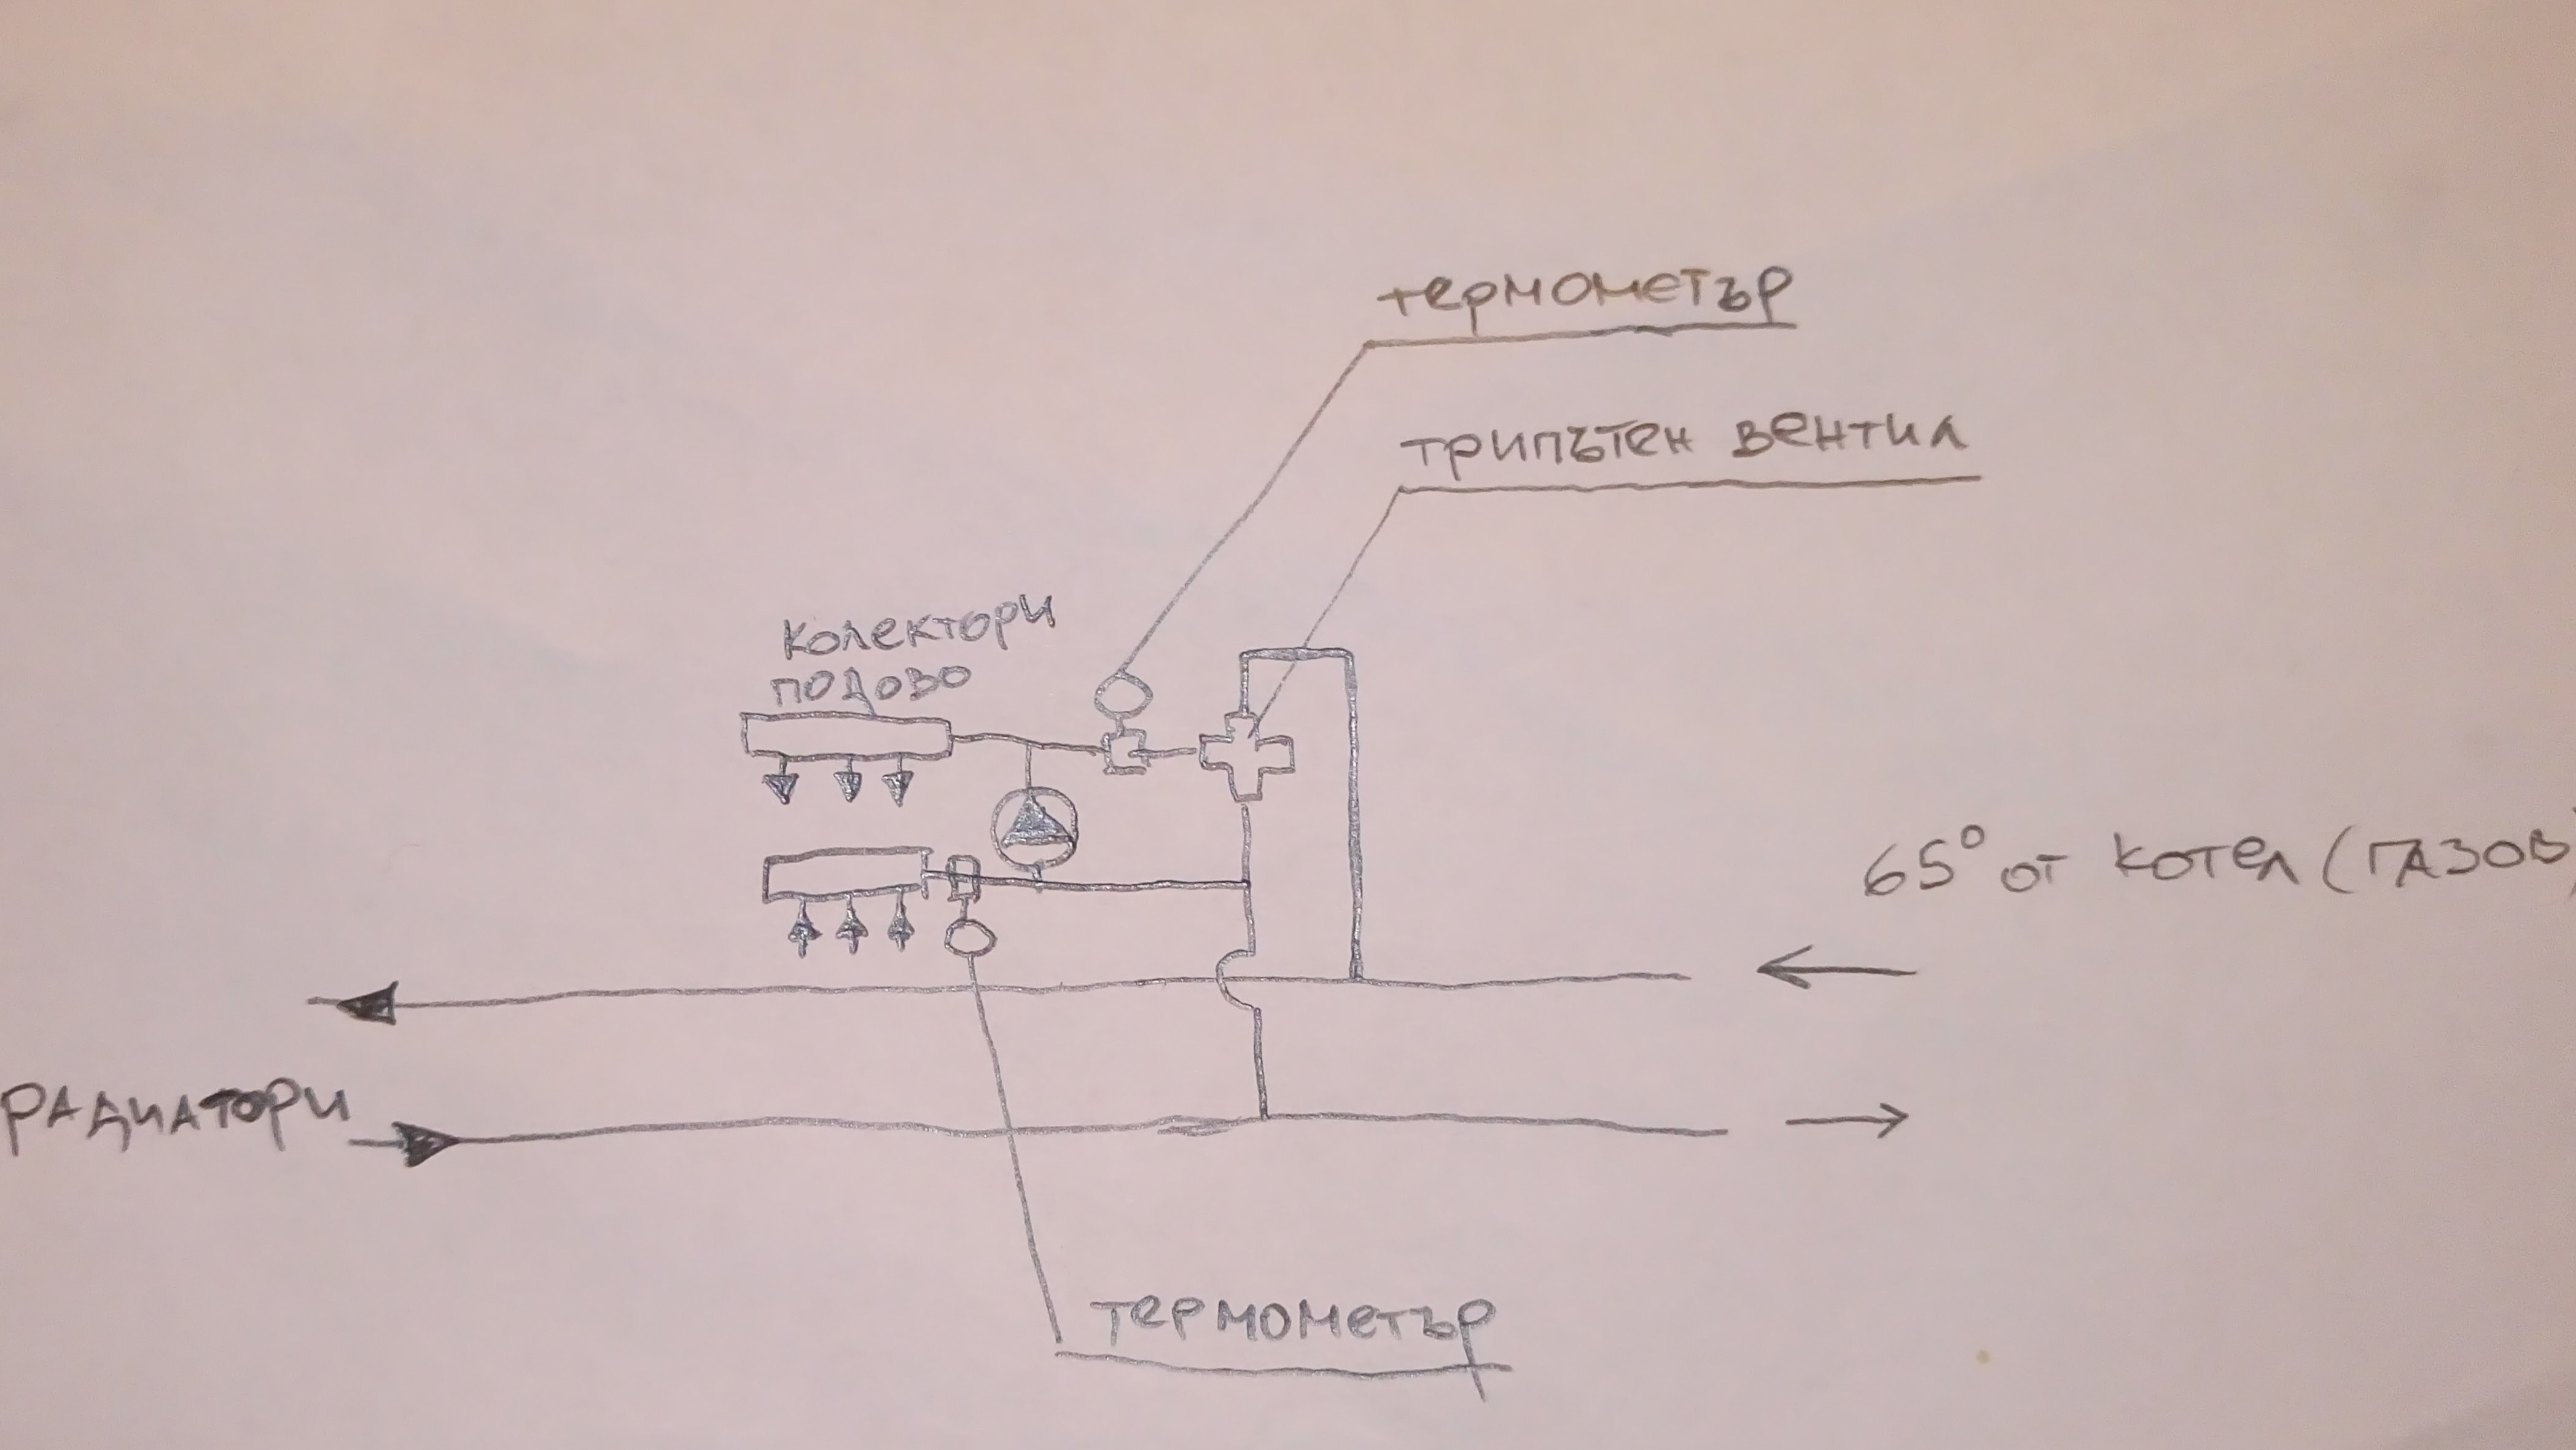 термометър
трипътен вентил
колектори
подово
65° от котел (газов)
радиатори
термометър